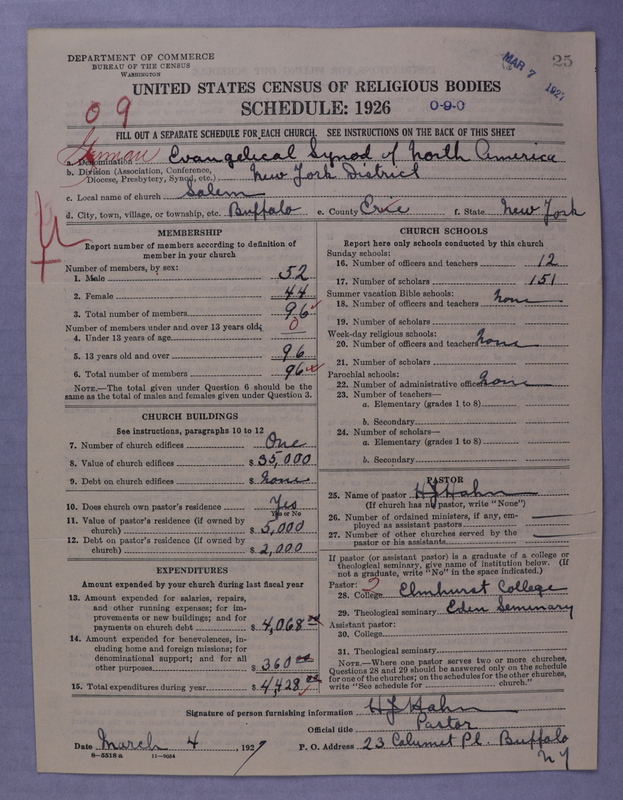 DEPARTMENT OF COMMERCE
BUREAU OF THE CENSUS
WASHINGTON
MAR 7 1927
25
UNITED STATES CENSUS OF RELIGIOUS BODIES
SCHEDULE: 1926
0-9-0
09
FILL OUT A SEPARATE SCHEDULE FOR EACH CHURCH. SEE INSTRUCTIONS ON THE BACK OF THIS SHEET
German
a. Denomination Evangelical Synod of North America
b. Division (Association, Conference, Diocese, Presbytery, Synod, etc.) New York District
c. Local name of church Salem
d. City, town, village, or township, etc. Buffalo e. County Erie f. State New York
MEMBERSHIP
Report number of members according to definition of
member in your church
Number of members, by sex:
1. Male 52
2. Female 44
3. Total number of members 96
Number of members under and over 13 years old:
4. Under 13 years of age 0
5. 13 years old and over 96
6. Total number of members 96
NOTE.—The total given under Question 6 should be the
same as the total of males and females given under Question 3.
CHURCH BUILDINGS
See instructions, paragraphs 10 to 12
7. Number of church edifices One
8. Value of church edifices $ 35,000
9. Debt on church edifices $ none
10. Does church own pastor's residence Yes
Yes or No
11. Value of pastor's residence (if owned by
church) $ 5,000
12. Debt on pastor's residence (if owned by
church) $ 2,000
EXPENDITURES
Amount expended by your church during last fiscal year
13. Amount expended for salaries, repairs,
and other running expenses; for im-
provements or new buildings; and for
payments on church debt $ 4,068 00
14. Amount expended for benevolences, in-
cluding home and foreign missions; for
denominational support; and for all
other purposes $ 360 00
15. Total expenditures during year $ 4,428 00
CHURCH SCHOOLS
Report here only schools conducted by this church
Sunday schools:
16. Number of officers and teachers 12
17. Number of scholars 151
Summer vacation Bible schools:
18. Number of officers and teachers none
19. Number of scholars
Week-day religious schools:
20. Number of officers and teachers none
21. Number of scholars
Parochial schools:
22. Number of administrative officers none
23. Number of teachers—
a. Elementary (grades 1 to 8)
b. Secondary
24. Number of scholars—
a. Elementary (grades 1 to 8)
b. Secondary
PASTOR
25. Name of pastor H J Hahn
(If church has no pastor, write "None")
26. Number of ordained ministers, if any, em-
ployed as assistant pastors
27. Number of other churches served by the
pastor or his assistants
If pastor (or assistant pastor) is a graduate of a college or
theological seminary, give name of institution below. (If
not a graduate, write "No" in the space indicated.)
Pastor: 2
28. College Elmhurst College
29. Theological seminary Eden Seminary
Assistant pastor:
30. College
31. Theological seminary
NOTE.—Where one pastor serves two or more churches,
Questions 28 and 29 should be answered only on the schedule
for one of the churches; on the schedules for the other churches,
write "See schedule for church."
Signature of person furnishing information H J Hahn
Official title Pastor
Date March 4, 1927 P. O. Address 23 Calumet Pl. Buffalo
N Y
8-5518a 11-9054